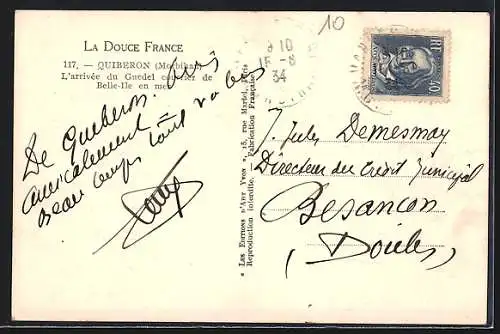 10
LA DOUCE FRANCE
117. — QUIBERON (Morbihan)
L'arrivée du Guedel courrier de
Belle-Ile en mer
De Quiberon.
amicalement à vous
Beau temps tout va bien
10
15 -8
34
RF
40
« LES EDITIONS D'ART YVON », 15, rue Martel, PARIS
Reproduction interdite. - Fabrication Française
J. Jules Demesmay
Directeur du Crédit Municipal
Besancon
(Doubs)